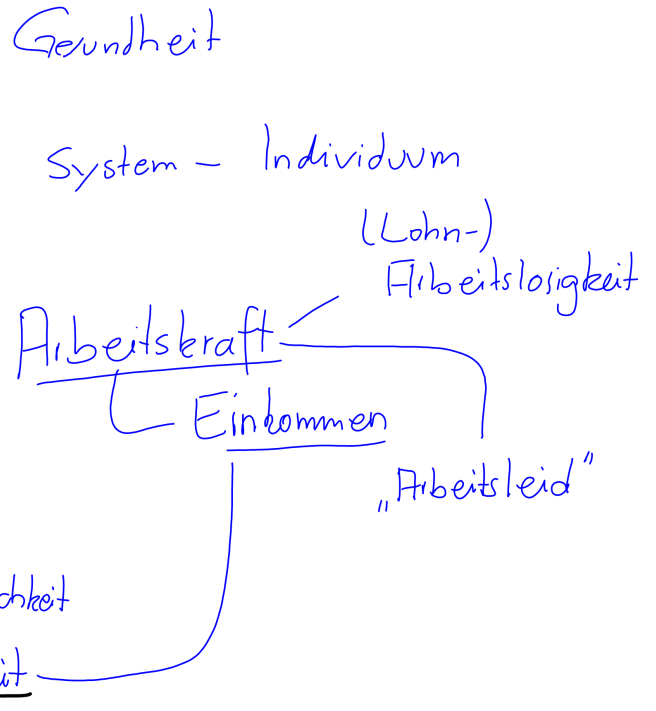 Gesundheit
System - Individuum
(Lohn-)
Arbeitslosigkeit
Arbeitskraft
Einkommen
„Arbeitsleid"
chkeit
it